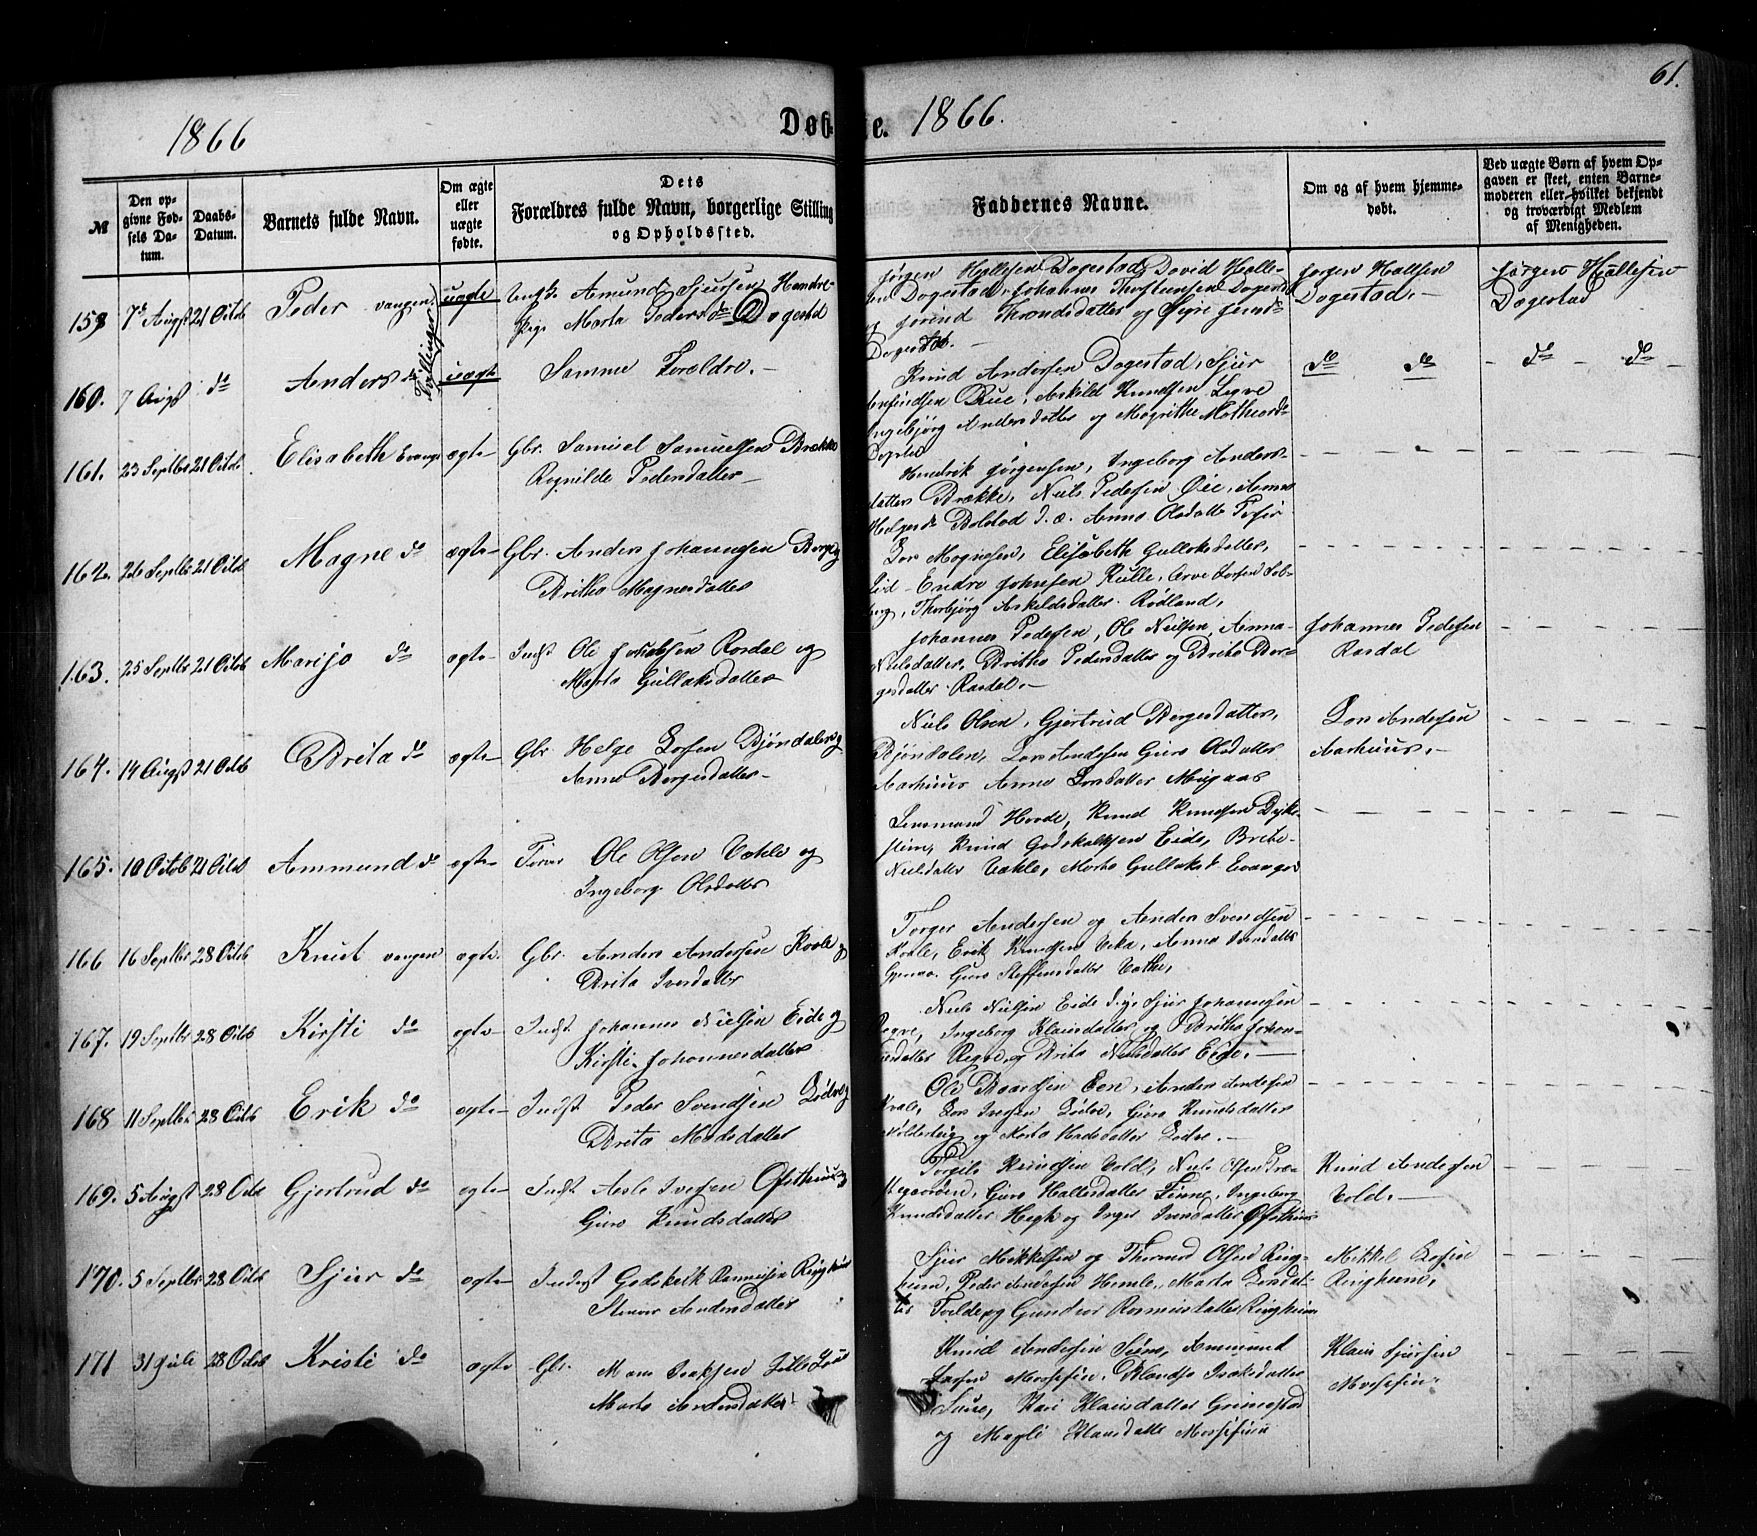 61.
1866
Døbte.
1866.
№
Den opgivne Fødsels Datum.
Daabs-Datum.
Barnets fulde Navn.
Om ægte eller uægte fødte.
Dets Forældres fulde Navn, borgerlige Stilling og Opholdssted.
Faddernes Navne.
Om og af hvem hjemmedøbt.
Ved uægte Børn af hvem Opgaven er skeet, enten Barnemoderen eller hvilket bekjendt og troværdigt Medlem af Menigheden.
159 7de Augst 21 Octb Peder vangen uægte Amund Sjursen
Pige Marta Peders d. Dogestad
Jørgen Hallesen Dogestad, David Halle-
sen Dogestad, Johannes Dogestad
og Jorind Throndsdatter og
Dogestad.
Jørgen Hallesen
Dogestad.
Jørgen Hallesen
Dogestad
Tvillinger
160. 7 Augst do Anders do uægte Samme Forældre.
Knud Andersen Dogestad, Sjur
Arnfindsen Rue, Askild Knudsen Lyve
Ingebjørg Andersdatter og Magrethe
do do do do
161. 23 Septbr 21 Octb Elisabeth Evanger ægte Gbr. Samuel Samuelsen Brække
Rognilde Pedersdatter
Hendrik Jørgensen, Ingeborg Anders-
datter Brække, Niels Pedersen Øie, Anna
Helgesd. Bolstad d. e. Anna Olsdatter
162. 26 Septbr 21 Octb Magne do ægte Gbr. Anders Johannesen Berge og
Britha Magnesdatter
Lar Magnesen, Elisabeth Gullaksdatter,
Endre Johnsen Kulle, Arve Larsen Sol-
berg, Thorbjørg Askildsdatter Rødland,
163. 25 Septbr 21 Octb Marijo do ægte Indst Ole Rasdal og
Marta Gullaksdatter
Johannes Pedersen, Ole Nielsen, Anna
Nielsdatter, Britha Pedersdatter og Brita Bør-
gesdatter Rasdal.
Johannes Pedersen
Rasdal
164. 14 Augst 21 Octb Brita do ægte Gbr Helge Larsen Bjøndalen og
Anna Børgesdatter
Niels Olsen, Gjertrud Børgesdatter,
Bjøndalen, Lars Andersen Guro Olsdatter
Aarhuus Anna Larsdatter Mugaas
Lars Andersen
Aarhuus.
165. 10 Octob 21 Octb Ammund do ægte Ole Olsen Væhle og
Ingeborg Olsdatter
Lensmand Horde, Knud Knudsen Dyke-
steen, Knud Godskalksen Eide, Brita
Nielsdatter Væhle, Marta Gullaksd. Evanger
166 16 Septbr 28 Octb Knut vangen ægte Gbr. Anders Andersen Kvale og
Brita Iversdatter
Torger Andersen og Anders Svendsen
Kvale, Erik Knudsen, Anna Iversdatter
Guro Steffensdatter
167. 19 Septbr 28 Octb Kirsti do ægte Indst Johannes Nielsen Eide og
Kirsti Johannesdatter
Niels Nielsen Eide, Sjur Johannesen
Regve, Ingeborg Klausdatter og Britha Johan-
nesdatter Regve, og Brita Nielsdatter Eide.
168 11 Septbr 28 Octb Erik do ægte Indst Peder Svendsen Lødve og
Brita Madsdatter
Ole Baardsen Een, Anders Andersen
Kvale, Lars Iversen Lødve, Guro Knudsdatter
og Marta Madsdatter Lødve.
169. 5 Augst 28 Octb Gjertrud do ægte Indst Asle Iversen Ofsthuus og
Guro Knudsdatter
Torgils Knudsen Vold, Niels Olsen Præ-
stegaarden, Guro Hallesdatter Finne, Ingeborg
Knudsdatter Hegle og Inger Iversdatter Ofsthuus
Knud Andersen
Vold.
170. 5 Septbr 28 Octb Sjur do ægte Indst Godskalk Rasmusen Ringheim
Andersdatter
Sjur Mikkelsen og Thormod Olsen Ring-
heim, Peder Andersen Hemle, Marta Larsdat-
ter Tvilde og Gundvor Rasmusdatter Ringheim
Mikkel Larsen
Ringheim,
171 31 Juli 28 Octb Kristi do ægte Gbr. Mons Isaksen
Marta Andersdatter
Knud Andersen Sæve, Ammund
Larsen Mossefin, Isaksdatter
Kari Klausdatter Grimestad
og Magli Klausdatter Mossefin
Klaus Sjursen
Mossefin.